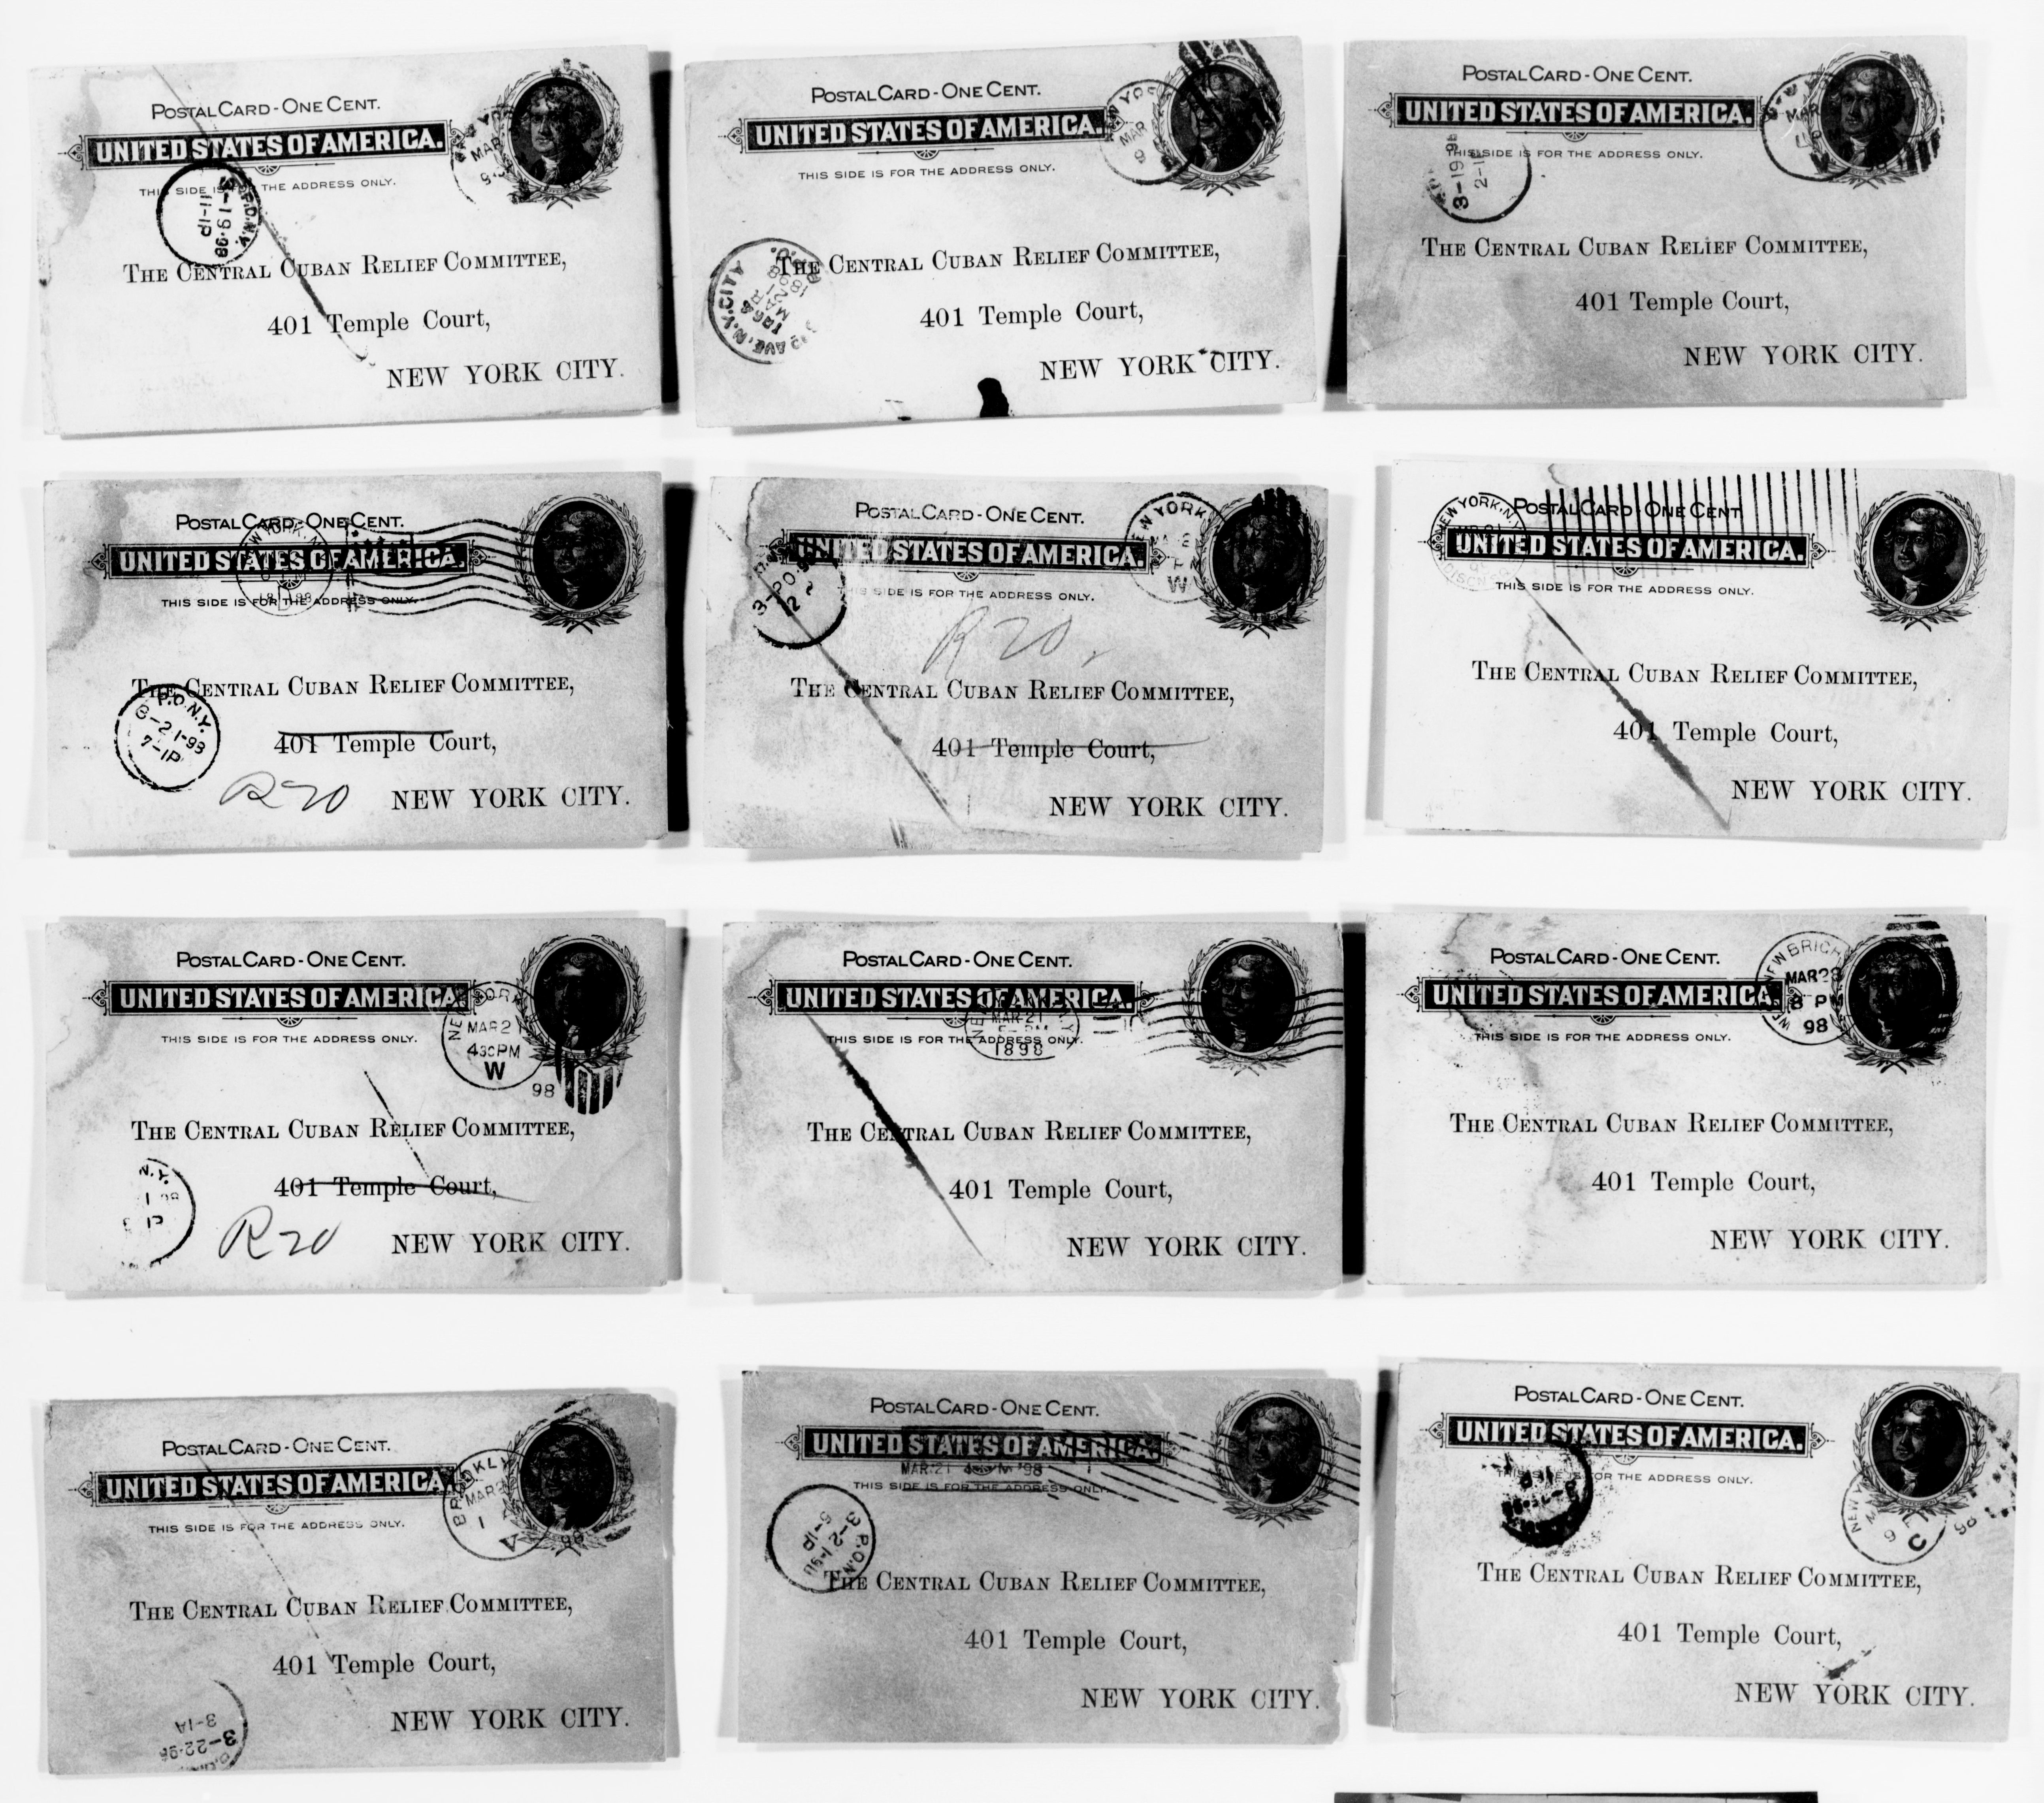 POSTAL CARD - ONE CENT.
UNITED STATES OF AMERICA.
THIS SIDE IS FOR THE ADDRESS ONLY.
MAR
3-19-98
11-1P
THE CENTRAL CUBAN RELIEF COMMITTEE,
401 Temple Court,
NEW YORK CITY.
POSTAL CARD - ONE CENT.
UNITED STATES OF AMERICA.
THIS SIDE IS FOR THE ADDRESS ONLY.
MAR
9
AVE. N.Y. CITY
THE CENTRAL CUBAN RELIEF COMMITTEE,
401 Temple Court,
NEW YORK CITY.
POSTAL CARD - ONE CENT.
UNITED STATES OF AMERICA.
THIS SIDE IS FOR THE ADDRESS ONLY.
MAR
3-19-98
THE CENTRAL CUBAN RELIEF COMMITTEE,
401 Temple Court,
NEW YORK CITY.
POSTAL CARD - ONE CENT.
UNITED STATES OF AMERICA.
THIS SIDE IS FOR THE ADDRESS ONLY.
THE CENTRAL CUBAN RELIEF COMMITTEE,
P.O.N.Y.
3-21-98
7-1P
401 Temple Court,
R20
NEW YORK CITY.
POSTAL CARD - ONE CENT.
UNITED STATES OF AMERICA.
THIS SIDE IS FOR THE ADDRESS ONLY.
NEW YORK
W
R20
THE CENTRAL CUBAN RELIEF COMMITTEE,
401 Temple Court,
NEW YORK CITY.
NEW YORK, N.Y.
POSTAL CARD - ONE CENT.
UNITED STATES OF AMERICA.
THIS SIDE IS FOR THE ADDRESS ONLY.
THE CENTRAL CUBAN RELIEF COMMITTEE,
401 Temple Court,
NEW YORK CITY.
POSTAL CARD - ONE CENT.
UNITED STATES OF AMERICA.
THIS SIDE IS FOR THE ADDRESS ONLY.
NEW YORK
MAR 2
430PM
W
98
THE CENTRAL CUBAN RELIEF COMMITTEE,
N.Y.
401 Temple Court,
R20
NEW YORK CITY.
POSTAL CARD - ONE CENT.
UNITED STATES OF AMERICA.
MAR 21
THIS SIDE IS FOR THE ADDRESS ONLY.
1898
THE CENTRAL CUBAN RELIEF COMMITTEE,
401 Temple Court,
NEW YORK CITY.
POSTAL CARD - ONE CENT.
UNITED STATES OF AMERICA.
THIS SIDE IS FOR THE ADDRESS ONLY.
8 PM
98
THE CENTRAL CUBAN RELIEF COMMITTEE,
401 Temple Court,
NEW YORK CITY.
POSTAL CARD - ONE CENT.
UNITED STATES OF AMERICA.
THIS SIDE IS FOR THE ADDRESS ONLY.
MAR
98
THE CENTRAL CUBAN RELIEF COMMITTEE,
401 Temple Court,
NEW YORK CITY.
3-22-98
3-1A
POSTAL CARD - ONE CENT.
UNITED STATES OF AMERICA.
MAR 21
'98
THIS SIDE IS FOR THE ADDRESS ONLY.
3-21-98
5-1P
THE CENTRAL CUBAN RELIEF COMMITTEE,
401 Temple Court,
NEW YORK CITY.
POSTAL CARD - ONE CENT.
UNITED STATES OF AMERICA.
THIS SIDE IS FOR THE ADDRESS ONLY.
C
98
THE CENTRAL CUBAN RELIEF COMMITTEE,
401 Temple Court,
NEW YORK CITY.